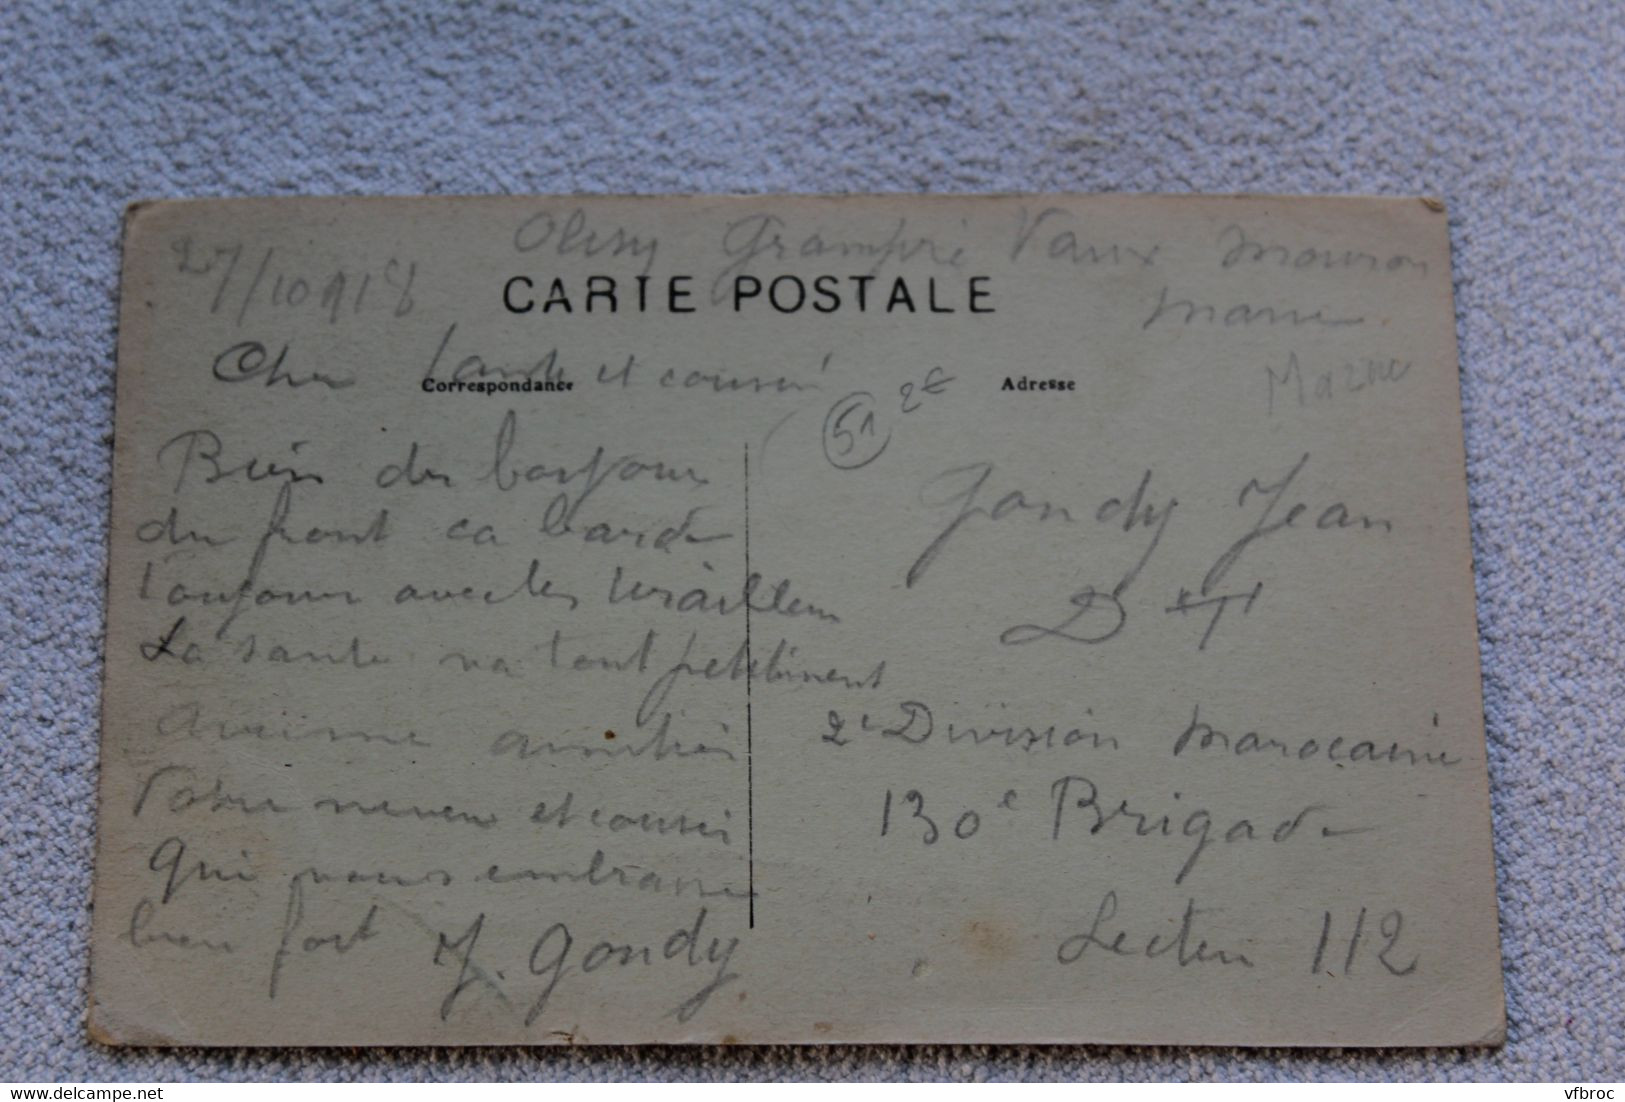 27/10 1918
Olizy Grampré Vaux Mouron
Marne
CARTE POSTALE
Cher tante et cousin
Correspondance
Adresse
51 2€
Bien des bonjour
du front ca barde
toujour avec les tirailleur
La sante va tout petitiment
amitiés
Votre neveu et cousin
qui vous embrasse
bien fort J. Gondy
Gondy Jean
2e Division Marocaine
130e Brigade
Secteur 112
vfbroc